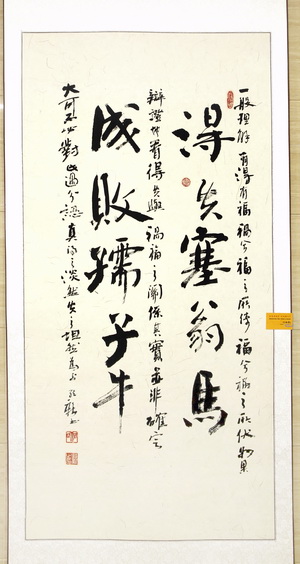 一般理解有得有福禍兮福之所倚福兮禍之所伏如果
得失塞翁馬
辯證地看得失與禍福之關係其實並非確定
成敗孺子牛
大可不必對此過分認真得之淡然失之坦然為上